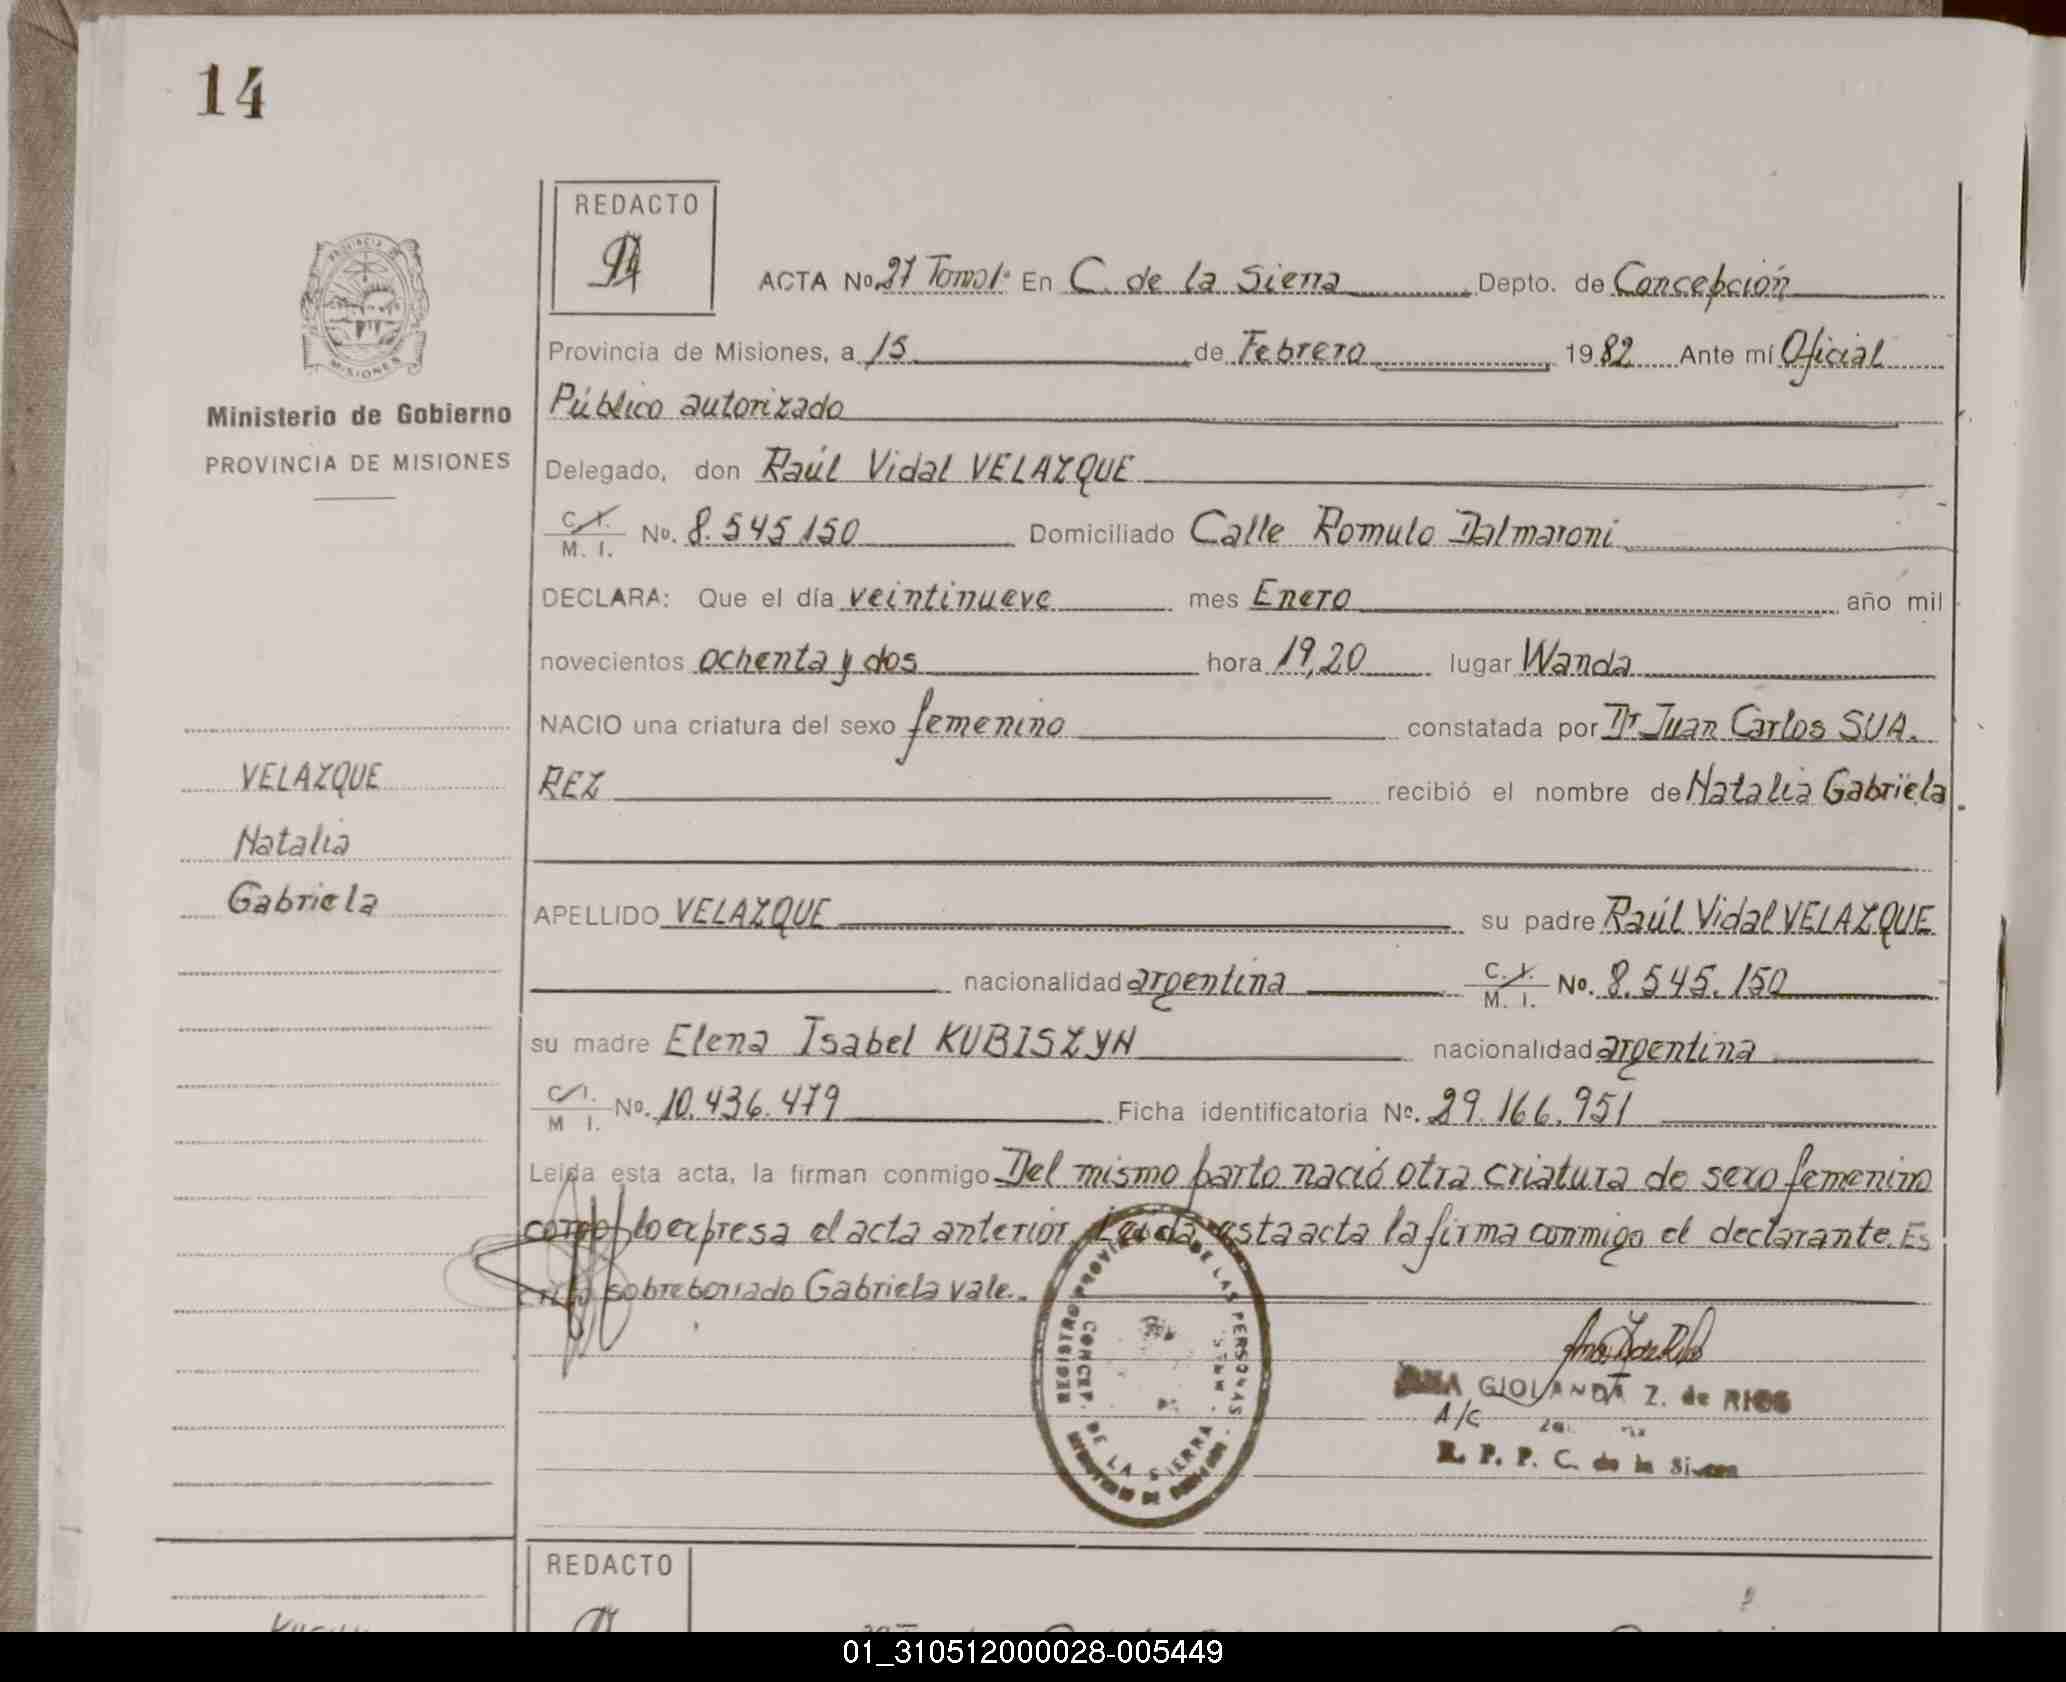 14
REDACTO
ACTA No. 27 Tomo 1º En C. de la Sierra Depto. de Concepción
PROVINCIA DE
MISIONES
Provincia de Misiones, a 15 de Febrero 1982 Ante mí Oficial
Ministerio de Gobierno
Público autorizado
PROVINCIA DE MISIONES
Delegado, don Raúl Vidal VELAZQUE
C. I.
M. I. No. 8.545150 Domiciliado Calle Romulo Dalmaroni
DECLARA: Que el día veintinueve mes Enero año mil
novecientos ochenta y dos hora 19,20 lugar Wanda
NACIO una criatura del sexo femenino constatada por Dr Juan Carlos SUA.
VELAZQUE
REZ recibió el nombre de Natalia Gabriela
Natalia
Gabriela
APELLIDO VELAZQUE su padre Raúl Vidal VELAZQUE
nacionalidad argentina C. I. M. I. No. 8.545.150
su madre Elena Isabel KUBISZYN nacionalidad argentina
C. I.
M I. No. 10.436.479 Ficha identificatoria No. 29.166.951
Leída esta acta, la firman conmigo Del mismo parto nació otra criatura de sexo femenino
como lo expresa el acta anterior. Leída esta acta la firma conmigo el declarante. Es
crito sobreborrado Gabriela vale..
REGISTRO PROVINCIAL DE LAS PERSONAS
CONCEP. DE LA SIERRA
MINISTERIO DE GOBIERNO
ANA GIOLANDA Z. de RIOS
A/C
R. P. P. C. de la Sierra
REDACTO
01_310512000028-005449